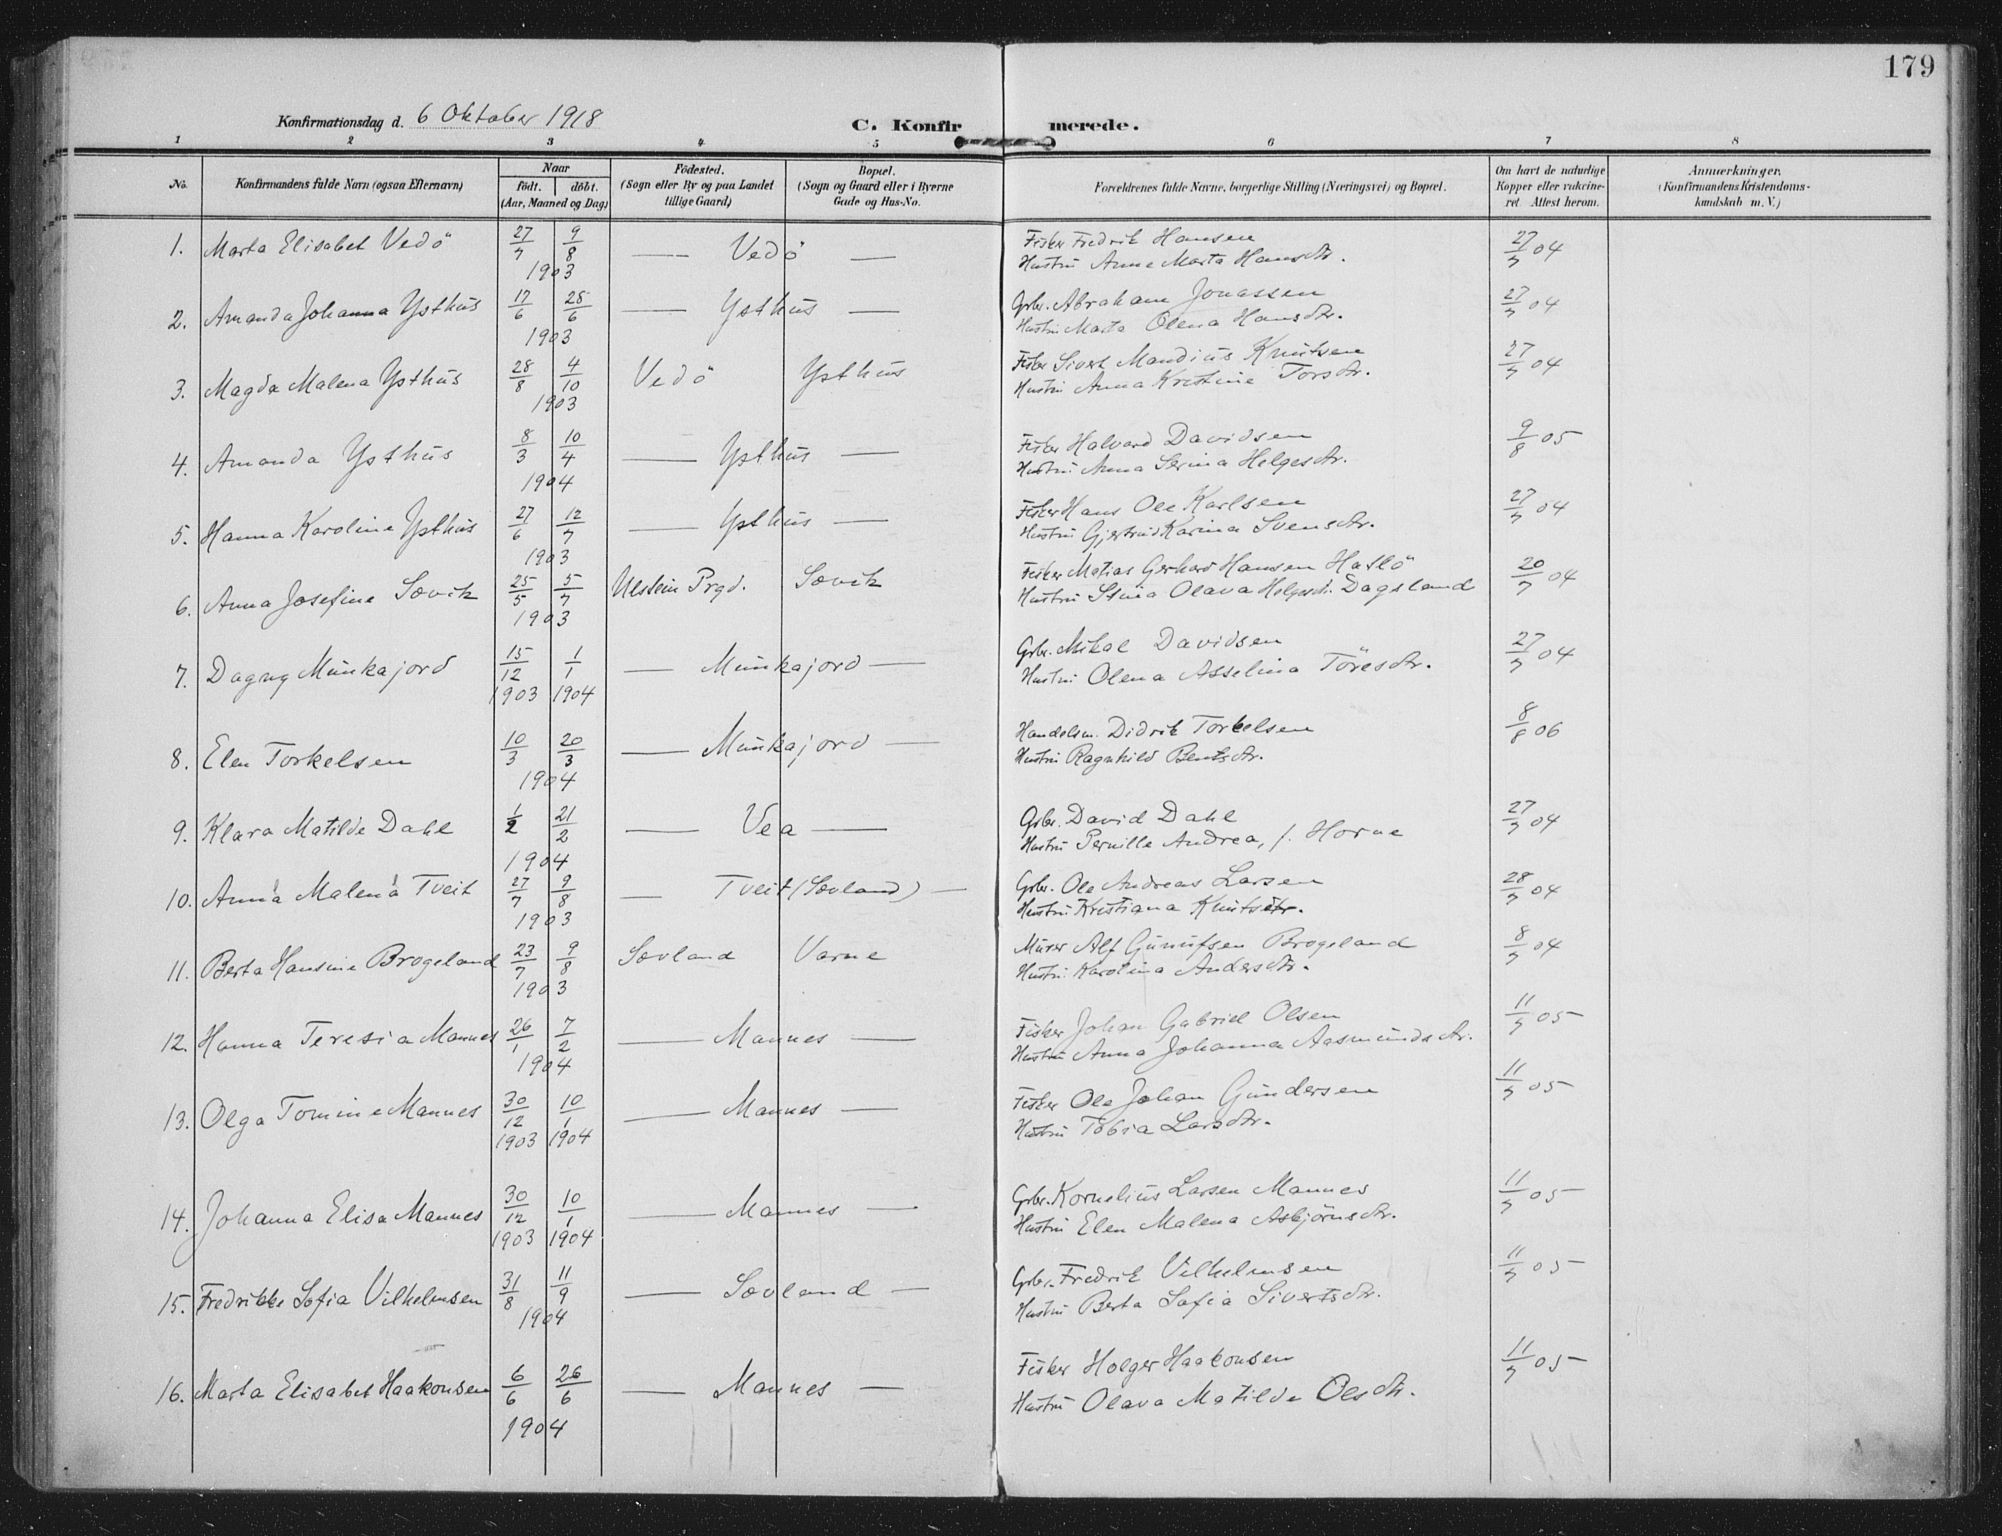 179
Konfirmationsdag d. 6 Oktober 1918
C. Konfirmerede.
1 2 3 4 5 6 7 8
No. Konfirmandens fulde Navn (ogsaa Efternavn) Naar født. døbt. (Aar, Maaned og Dag) Fødested. (Sogn eller By og paa Landet tillige Gaard) Bopæl. (Sogn og Gaard eller i Byerne Gade og Hus-No. Forældrenes fulde Navne, borgerlige Stilling (Næringsvei) og Bopæl. Om havt de naturlige Kopper eller vakcineret. Attest herom. Anmærkninger. (Konfirmandens Kristendomskundskab m. V.)
1. Marta Elisabet Vedö 27/7 9/8 1903 — Vedö — Fisker Fredrik Hansen 27/7 04
Hustru Anne Marta Hansdtr.
2. Amanda Johanna Ysthus 17/6 28/6 1903 — Ysthus — Grbr. Abraham Jonassen 27/7 04
Hustru Marta Olena Hansdtr.
3. Magda Malena Ysthus 28/8 4/10 1903 Vedö Ysthus Fisker Sivert Mandius Knutsen 27/7 04
Hustru Anna Kristine Torsdtr.
4. Amanda Ysthus 8/3 10/4 1904 — Ysthus — Fisker Halvard Davidsen 9/8 05
Hustru Anna Serina Helgesdtr.
5. Hanna Karoline Ysthus 27/6 12/7 1903 — Ysthus — Fisker Hans Ole Karlsen 27/7 04
Hustru Gjertrud Karina Svensdtr.
6. Anna Josefine Sævik 25/5 5/7 1903 Ulstein Prgd. Sævik Fisker Matias Gerhard Hansen Haslö 20/7 04
Hustru Stina Olava Helgesd. Dagsland
7. Dagny Munkajord 15/12 1903 1/1 1904 — Munkajord — Grbr. Mikal Davidsen 27/7 04
Hustru Olena Asselina Töresdtr.
8. Elen Torkelsen 10/3 20/3 1904 — Munkajord — Handelsm. Didrik Torkelsen 8/8 06
Hustru Ragnhild Bentsdtr.
9. Klara Matilde Dahl 1/2 21/2 1904 — Vea — Grbr. David Dahl 27/7 04
Hustru Pernille Andrea, f. Horne
10. Anna Malena Tveit 27/7 9/8 1903 — Tveit (Sævland) — Grbr. Ole Andreas Larsen 28/7 04
Hustru Kristiana Knutsdtr.
11. Berta Hansine Brogeland 23/7 9/8 1903 Sævland Varne Murer Alf Gunufsen Brogeland 8/7 04
Hustru Karolina Andersdtr.
12. Hanna Teresia Mannes 26/1 7/2 1904 — Mannes — Fisker Johan Gabriel Olsen 11/7 05
Hustru Anna Johanna Aasmundsdtr.
13. Olga Tomine Mannes 30/12 1903 10/1 1904 — Mannes — Fisker Ole Johan Gundersen 11/7 05
Hustru Tobia Larsdtr.
14. Johanna Elisa Mannes 30/12 1903 10/1 1904 — Mannes — Grbr. Kornelius Larsen Mannes 11/7 05
Hustru Elen Malena Asbjörnsdtr.
15. Fredrikke Sofia Vilhelmsen 31/8 11/9 1904 — Sævland — Grbr. Fredrik Vilhelmsen 11/7 05
Hustru Berta Sofia Sivertsdtr.
16. Marta Elisabet Haakonsen 6/6 26/6 1904 — Mannes — Fisker Holger Haakonsen 11/7 05
Hustru Olava Matilde Olsdtr.